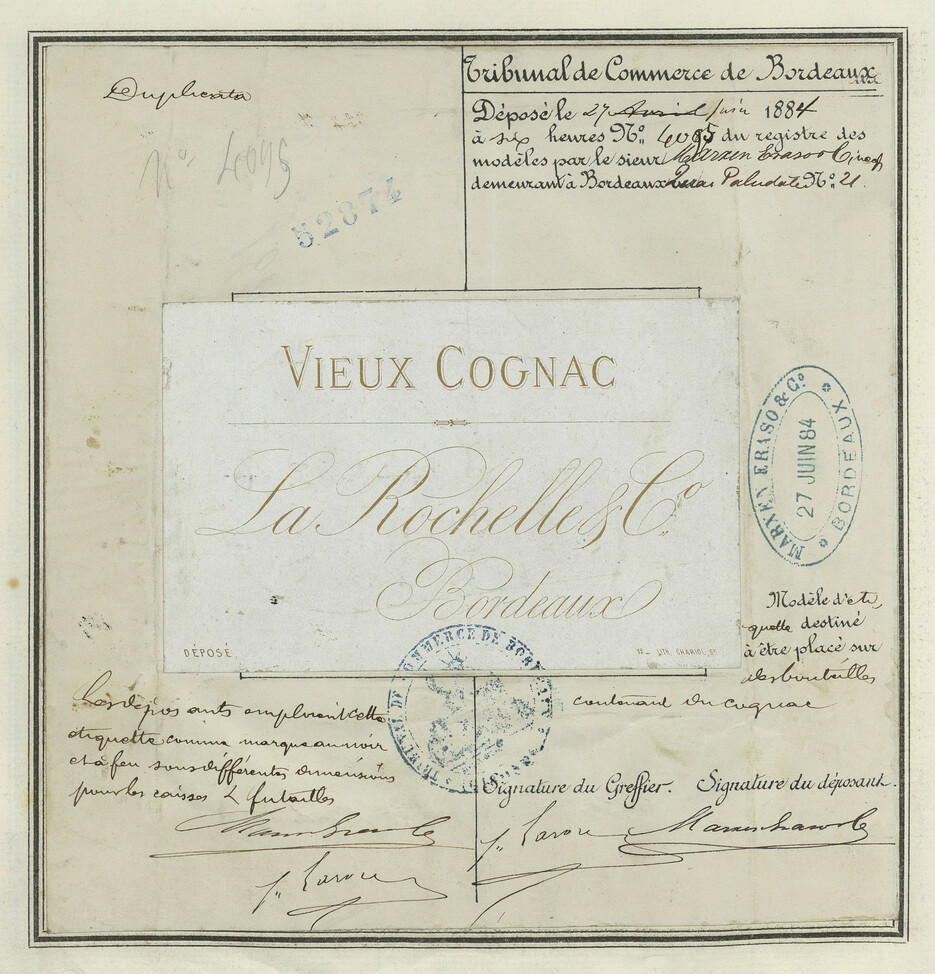 Duplicata
Nº 4095
52874
Tribunal de Commerce de Bordeaux
Déposé le 27 Avril Juin 1884
à six heures Nº 4095 du registre des
modèles par le sieur Marxen Eraso & Cie
demeurant à Bordeaux Quai Paludate Nº 21.
VIEUX COGNAC
La Rochelle & Cº
Bordeaux
DÉPOSÉ
LITH. CHARIOL, Bx
MARXEN ERASO & Cº
27 JUIN 84
BORDEAUX
Modèle d'éti
quette destiné
à être placé sur
des bouteilles
contenant du cognac
TRIBUNAL DE COMMERCE DE BORDEAUX
Les déposants emploient cette
etiquette comme marque au noir
et à feu sous différentes dimensions
pour les caisses & futailles
Signature du Greffier. Signature du déposant.